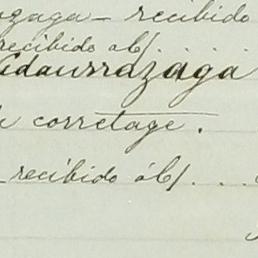 ozaga – recibido
recibido ab/. . . .
Idaurrazaga
corretage.
– recibido ab/. . .